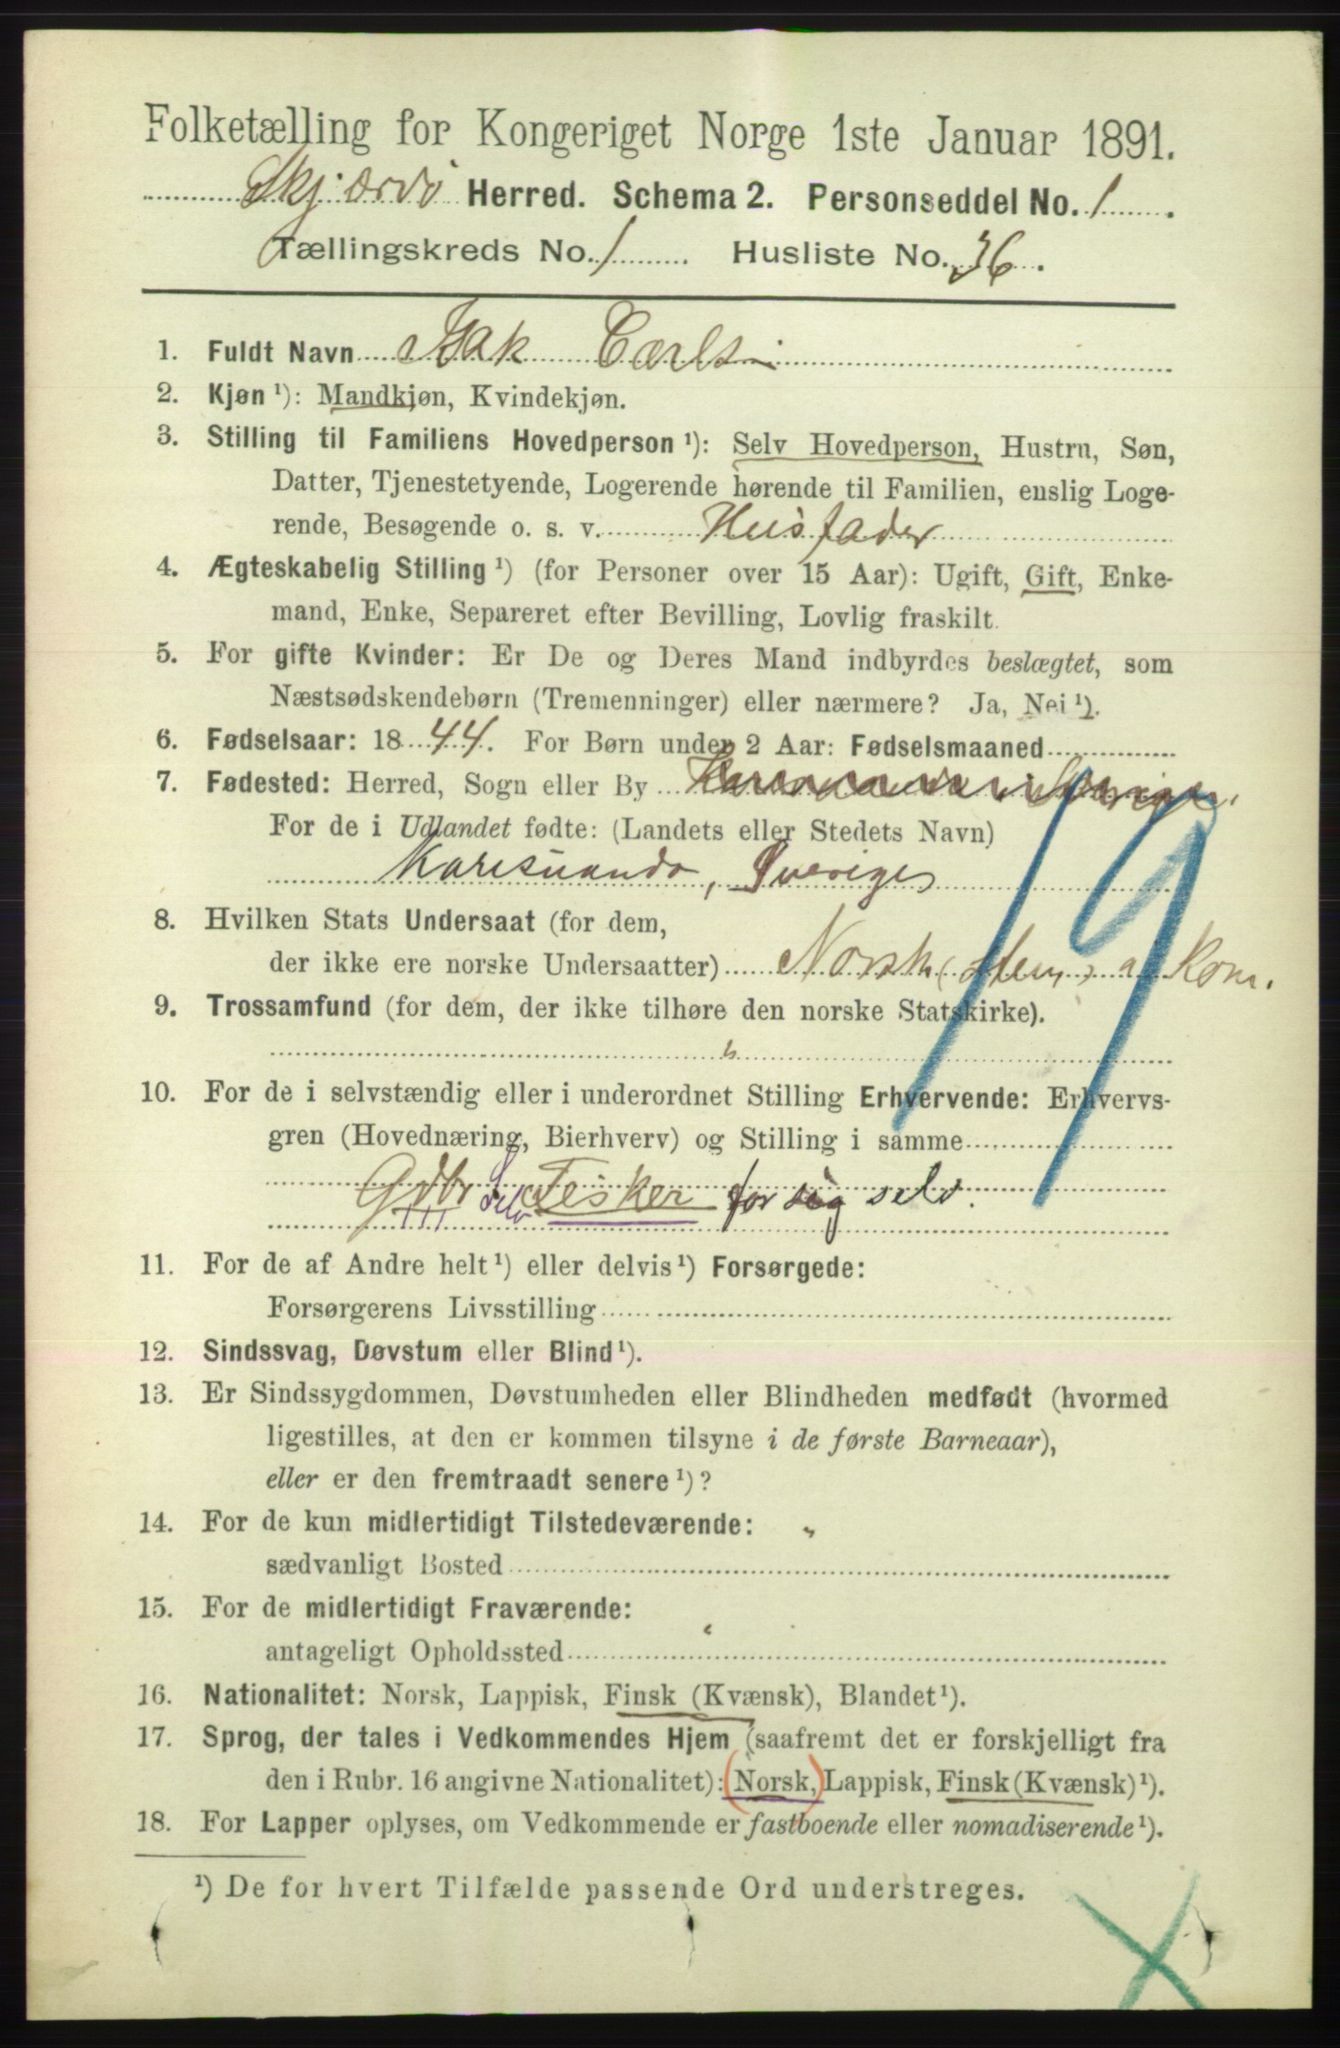 Folketælling for Kongeriget Norge 1ste Januar 1891.
Skjærvö Herred. Schema 2. Personseddel No. 1.
Tællingskreds No. 1 Husliste No. 36.
1. Fuldt Navn Isak Carls
2. Kjøn ¹): Mandkjøn, Kvindekjøn.
3. Stilling til Familiens Hovedperson ¹): Selv Hovedperson, Hustru, Søn,
Datter, Tjenestetyende, Logerende hørende til Familien, enslig Loge-
rende, Besøgende o. s. v. Husfader
4. Ægteskabelig Stilling ¹) (for Personer over 15 Aar): Ugift, Gift, Enke-
mand, Enke, Separeret efter Bevilling, Lovlig fraskilt.
5. For gifte Kvinder: Er De og Deres Mand indbyrdes beslægtet, som
Næstsødskendebørn (Tremenninger) eller nærmere? Ja, Nei ¹).
6. Fødselsaar: 1844. For Børn under 2 Aar: Fødselsmaaned
7. Fødested: Herred, Sogn eller By
For de i Udlandet fødte: (Landets eller Stedets Navn)
Karesuando, Sveriges
19
8. Hvilken Stats Undersaat (for dem,
der ikke ere norske Undersaatter) Norsk
9. Trossamfund (for dem, der ikke tilhøre den norske Statskirke).
"
10. For de i selvstændig eller i underordnet Stilling Erhvervende: Erhvervs-
gren (Hovednæring, Bierhverv) og Stilling i samme
Gdbr Selv Fisker for sig selv.
11. For de af Andre helt ¹) eller delvis ¹) Forsørgede:
Forsørgerens Livsstilling
12. Sindssvag, Døvstum eller Blind ¹).
13. Er Sindssygdommen, Døvstumheden eller Blindheden medfødt (hvormed
ligestilles, at den er kommen tilsyne i de første Barneaar),
eller er den fremtraadt senere ¹)?
14. For de kun midlertidigt Tilstedeværende: "
sædvanligt Bosted
15. For de midlertidigt Fraværende:
antageligt Opholdssted
16. Nationalitet: Norsk, Lappisk, Finsk (Kvænsk), Blandet ¹).
17. Sprog, der tales i Vedkommendes Hjem (saafremt det er forskjelligt fra
den i Rubr. 16 angivne Nationalitet): (Norsk,) Lappisk, Finsk (Kvænsk) ¹).
18. For Lapper oplyses, om Vedkommende er fastboende eller nomadiserende ¹).
¹) De for hvert Tilfælde passende Ord understreges.